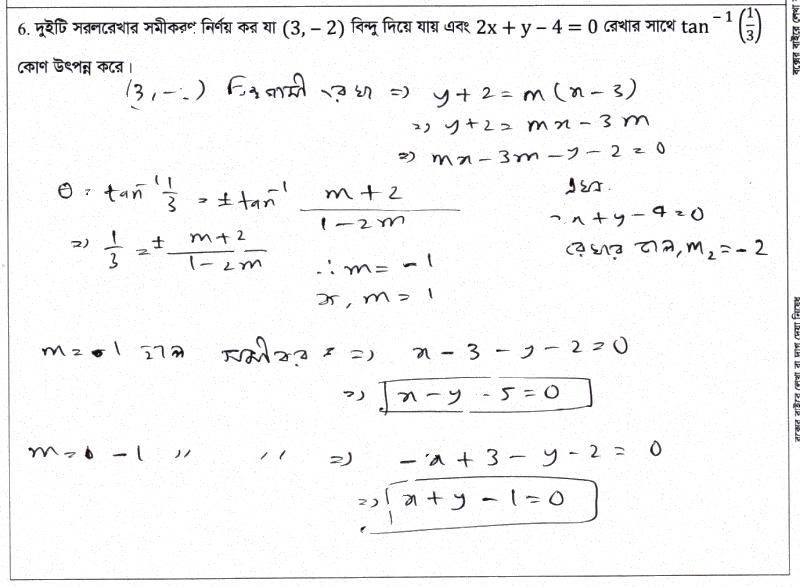 6. দুইটি সরলরেখার সমীকরণ নির্ণয় কর যা (3, – 2) বিন্দু দিয়ে যায় এবং 2x + y – 4 = 0 রেখার সাথে tan⁻¹ (1/3)
কোণ উৎপন্ন করে।
(3, -) বিন্দুগামী রেখা => y + 2 = m (x - 3)
=> y + 2 = mx - 3m
=> mx - 3m - y - 2 = 0
θ = tan⁻¹ 1/3 = ± tan⁻¹ (m + 2)/(1 - 2m)
এখন
x + y - 4 = 0
=> 1/3 = ± (m + 2)/(1 - 2m)
রেখার ঢাল, m₂ = - 2
∴ m = - 1
বা, m = 1
m = 1 হলে সমীকরণ => x - 3 - y - 2 = 0
=> x - y - 5 = 0
m = - 1 " " => - x + 3 - y - 2 = 0
=> x + y - 1 = 0